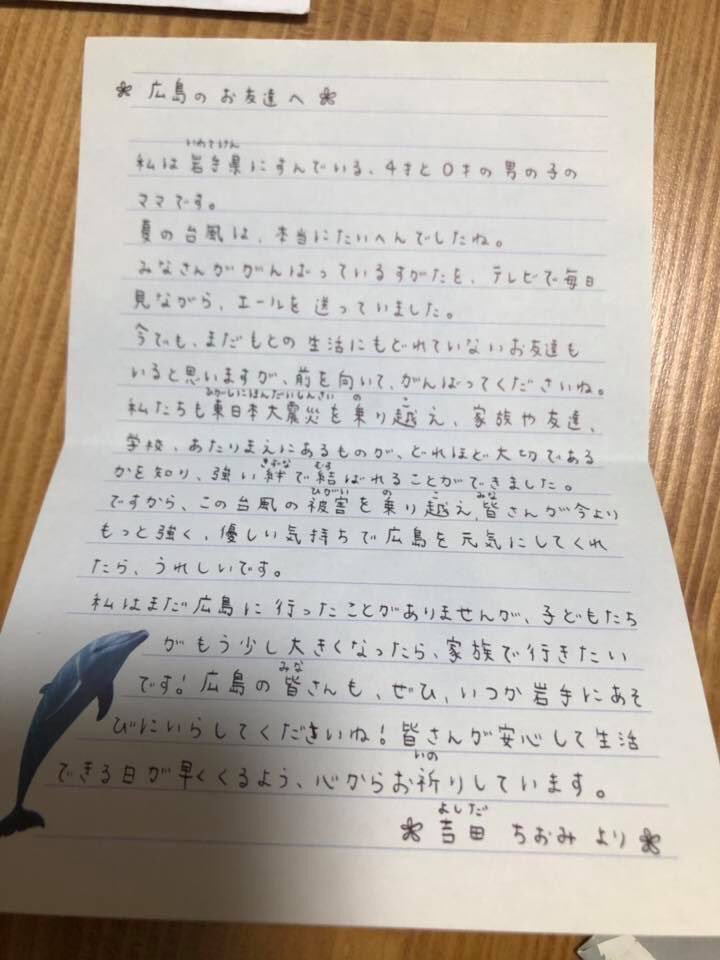 広島のお友達へ
いわてけん
私は岩手県にすんでいる、4才と0才の男の子の
ママです。
夏の台風は、本当にたいへんでしたね。
みなさんががんばっているすがたを、テレビで毎日
見ながら、エールを送っていました。
今でも、まだもとの生活にもどれていないお友達も
いると思いますが、前を向いて、がんばってくださいね。
ひがしにほんだいしんさい の こ
私たちも東日本大震災を乗り越え、家族や友達、
学校、あたりまえにあるものが、どれほど大切である
きずな むす
かを知り、強い絆で結ばれることができました。
ひがい の こ みな
ですから、この台風の被害を乗り越え、皆さんが今より
もっと強く、優しい気持ちで広島を元気にしてくれ
たら、うれしいです。
私はまだ広島に行ったことがありませんが、子どもたち
がもう少し大きくなったら、家族で行きたい
みな
です!広島の皆さんも、ぜひ、いつか岩手にあそ
びにいらしてくださいね!皆さんが安心して生活
いの
できる日が早くくるよう、心からお祈りしています。
よしだ
吉田 ちおみ より